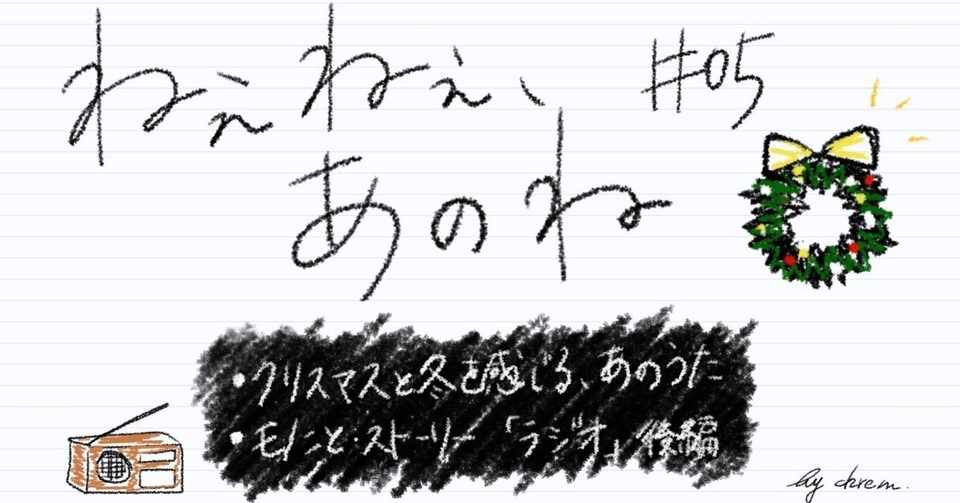 ねぇねぇ、 #05
あのね
• クリスマスと冬を感じる、あのうた
• モノこと・ストーリー「ラジオ」後編
by